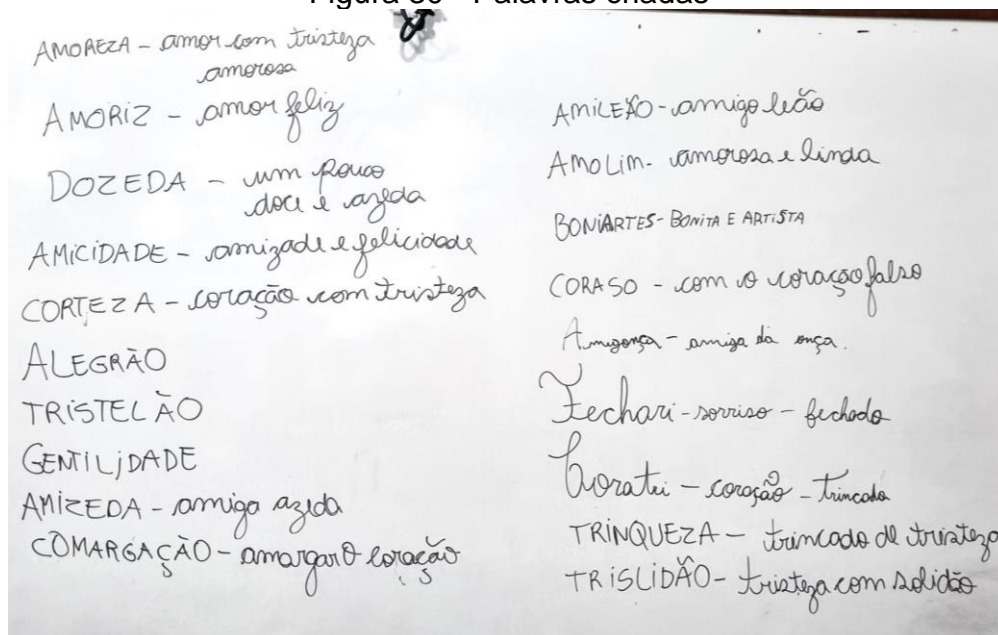 Figura 30 - Palavras criadas
AMOREZA - amor com tristeza
amorosa
AMORIZ - amor feliz
DOZEDA - um pouco
doce e azeda
AMICIDADE - amizade e felicidade
CORTEZA - coração com tristeza
ALEGRÃO
TRISTELÃO
GENTILIDADE
AMIZEDA - amiga azeda
COMARGAÇÃO - amargar o coração
AMILEÃO - amigo leão
AMOLIM - amorosa e linda
BONIARTES - BONITA E ARTISTA
CORASO - com o coração falso
Amigonça - amiga da onça.
Fechari - sorriso - fechado
Coratri - coração - trincado
TRINQUEZA - trincado de tristeza
TRISLIDÃO - tristeza com solidão